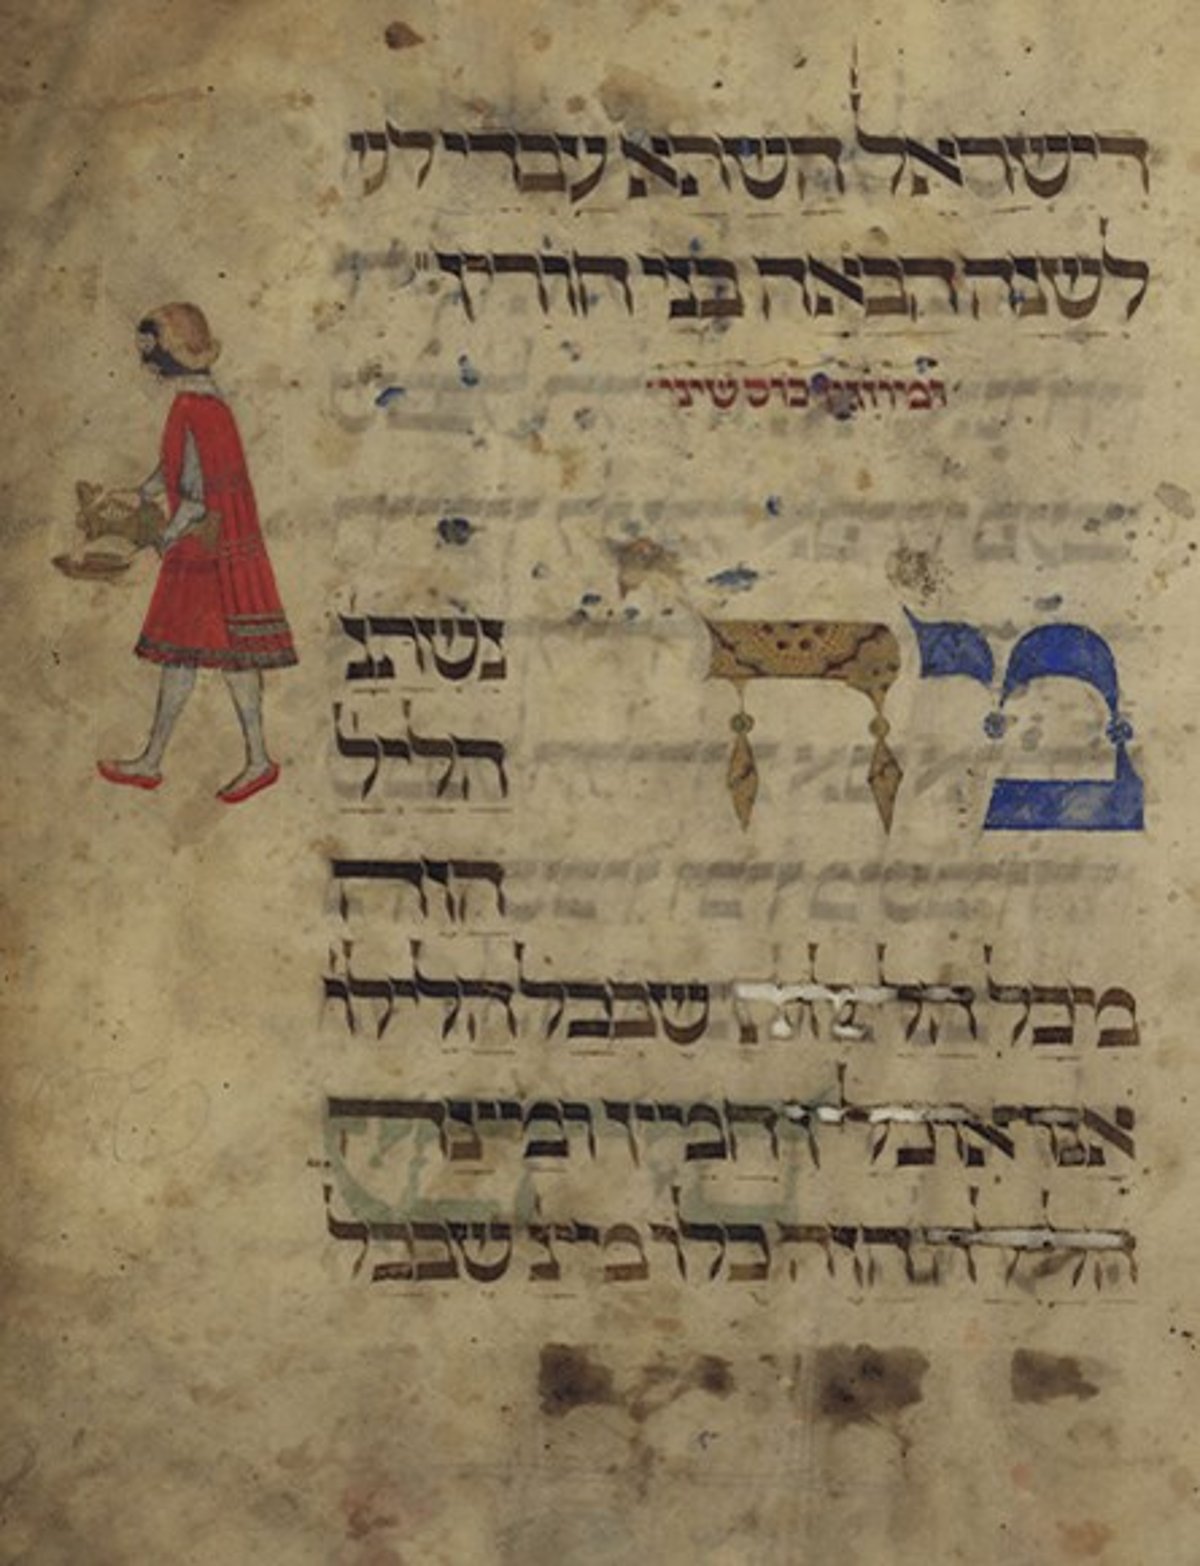 דישראל השתא עבדי לש
לשנה הבאה בני חורין
ומוזגין כוס שיני
מה נשתנ
הליל
הזה
מיכל הלילות שבכל הלילו
אנו אוכלין חמיץ ומיצה
הלילה הזה כלו מיצ שבכל